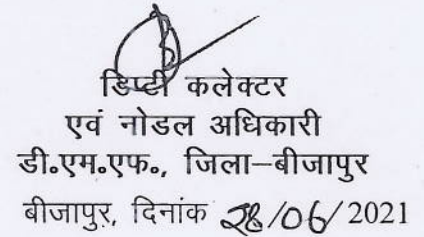 डिप्टी कलेक्टर
एवं नोडल अधिकारी
डी.एम.एफ., जिला–बीजापुर
बीजापुर, दिनांक 28/06/2021